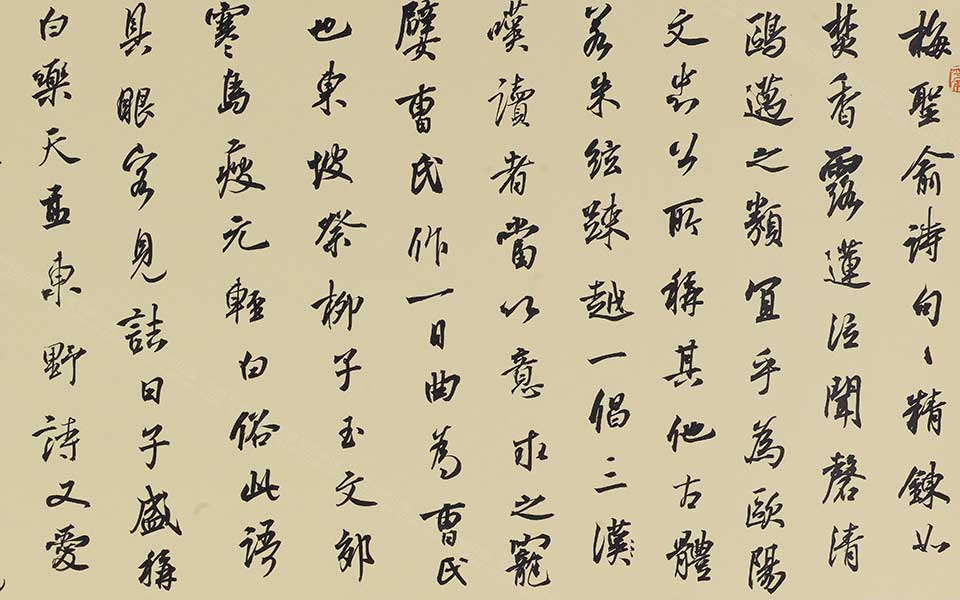 梅聖俞詩句〻精鍊如
焚香露蓮泣聞磬清
鷗邁之類宜乎為歐陽
文忠公所稱其他古體
若朱絃踈越一倡三漢
嘆讀者當以意求之寵
嬖曹氏作一日曲為曹氏
也東坡祭柳子玉文郊
寒島瘦元輕白俗此語
具眼客見詰曰子盛稱
白樂天孟東野詩又愛